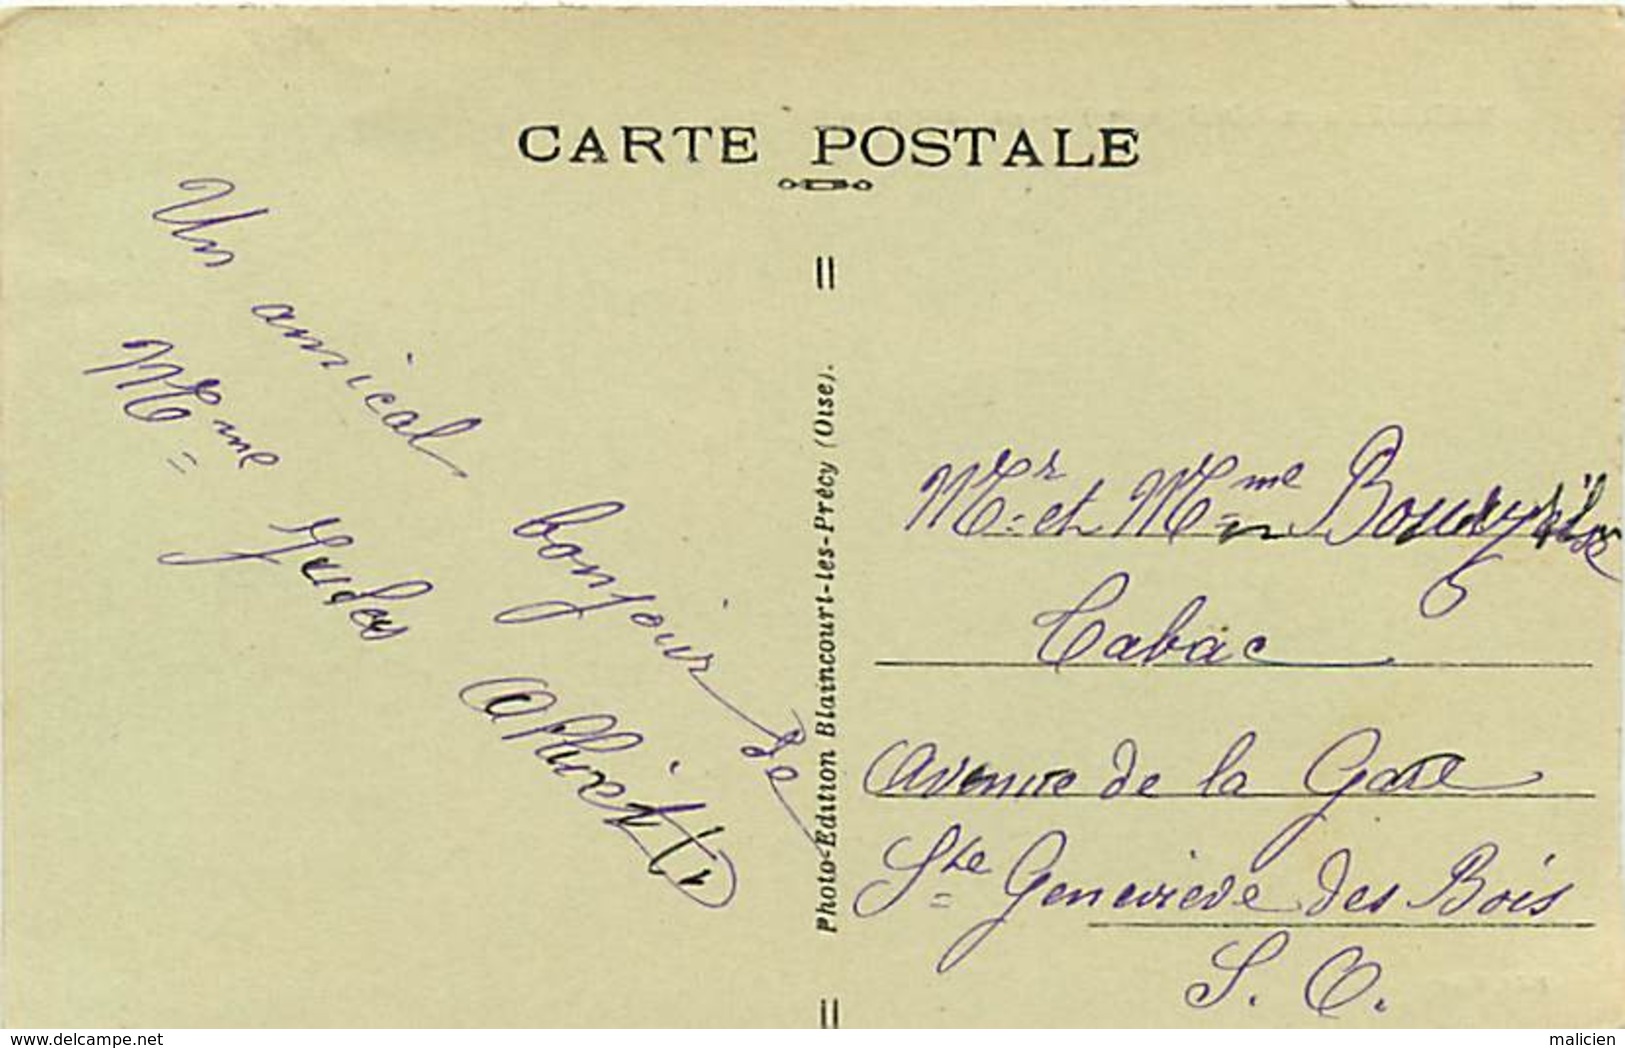 CARTE POSTALE
Un amical bonjour de
Mme Jules
Photo-Edition Blaincourt-les-Précy (Oise).
Mr et Mme
Tabac
Avenue de la Gare
Ste Geneviève des Bois
S. O.
www.delcampe.net
malicien